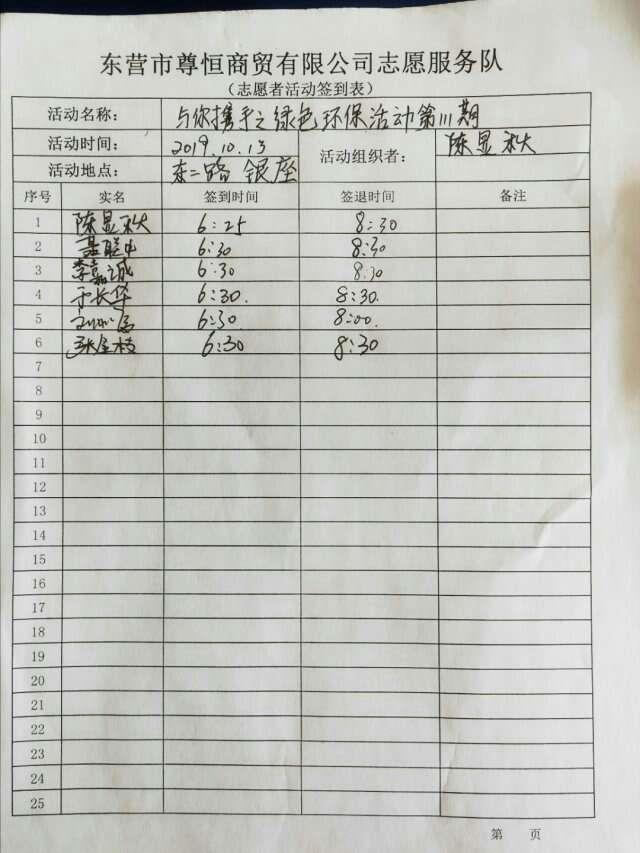 东营市尊恒商贸有限公司志愿服务队
（志愿者活动签到表）
活动名称： 与你携手之绿色环保活动第111期
活动时间： 2019.10.13 活动组织者： 陈显秋
活动地点： 东二路 银座
序号 实名 签到时间 签退时间 备注
1 陈显秋 6:25 8:30
2 6:30 8:30
3 李嘉诚 6:30 8:30
4 于长华 6:30. 8:30.
5 6:30 8:00.
6 张金枝 6:30 8:30
7
8
9
10
11
12
13
14
15
16
17
18
19
20
21
22
23
24
25
第 页